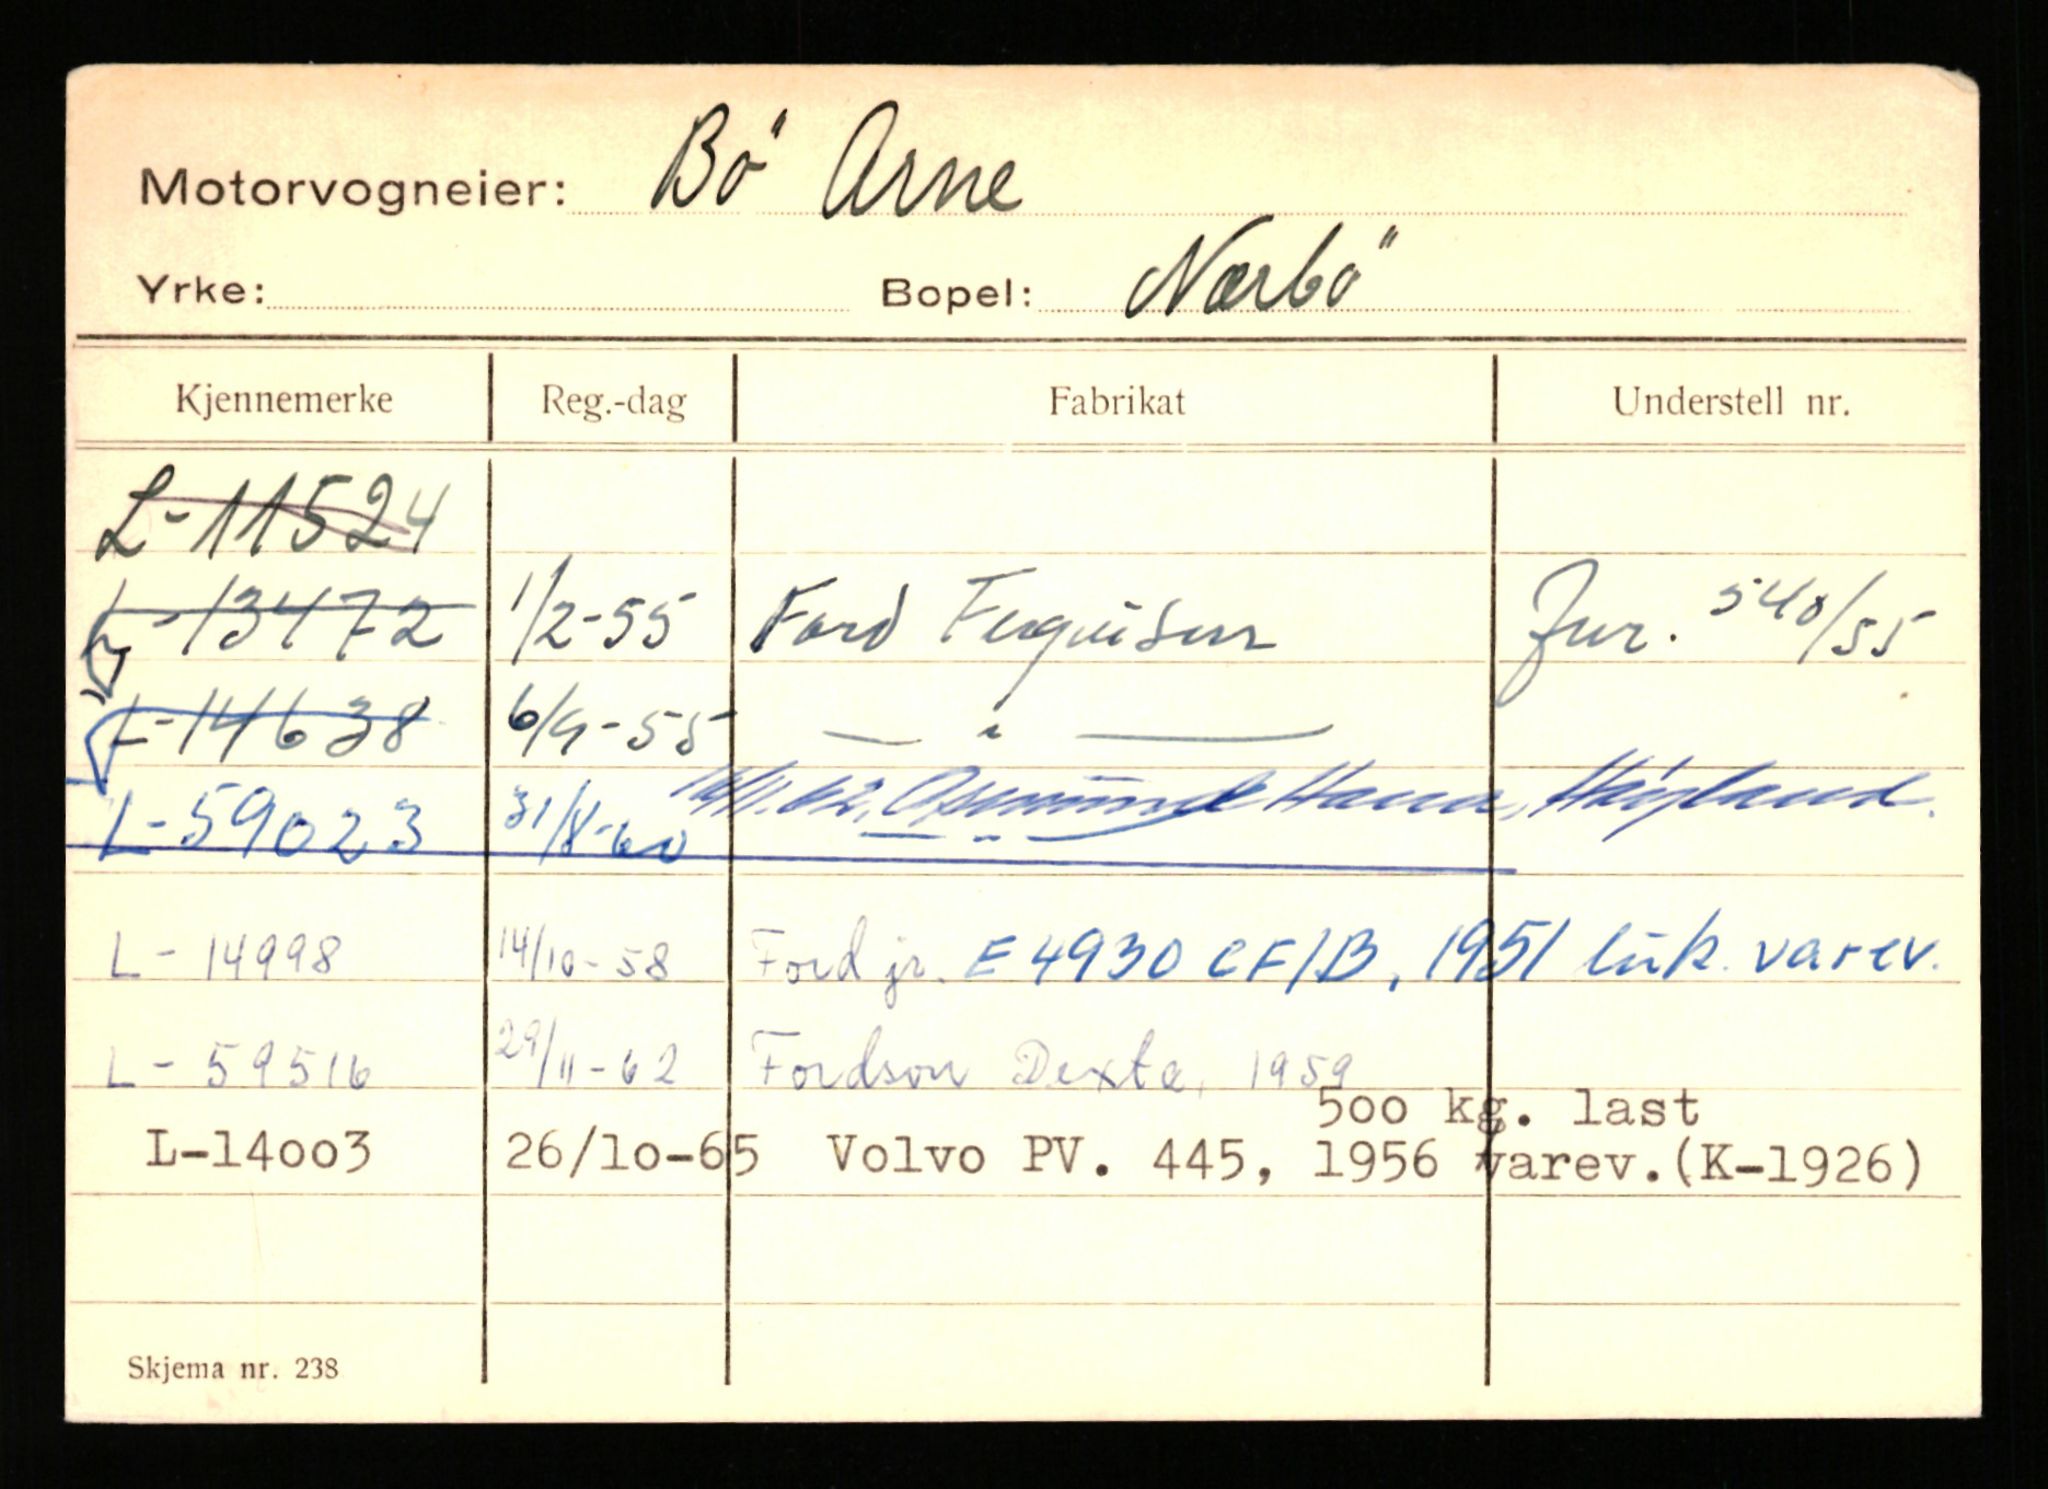 Motorvogneier: Bö Arne
Yrke: Bopel: Nærbö
Kjennemerke Reg.-dag Fabrikat Understell nr.
L-11524
L-13472 1/2-55 Ford Ferguson Jnr. 540/55
L-14638 6/9-55 — " —
L-59023 31/8-60 — " — Osmund Høyland.
L-14998 14/10-58 Ford jr. E4930 CF/B, 1951 luk. varev.
L-59516 29/11-62 Fordson Dexta, 1959
500 kg. last
L-14003 26/10-65 Volvo PV. 445, 1956 varev.(K-1926)
Skjema nr. 238